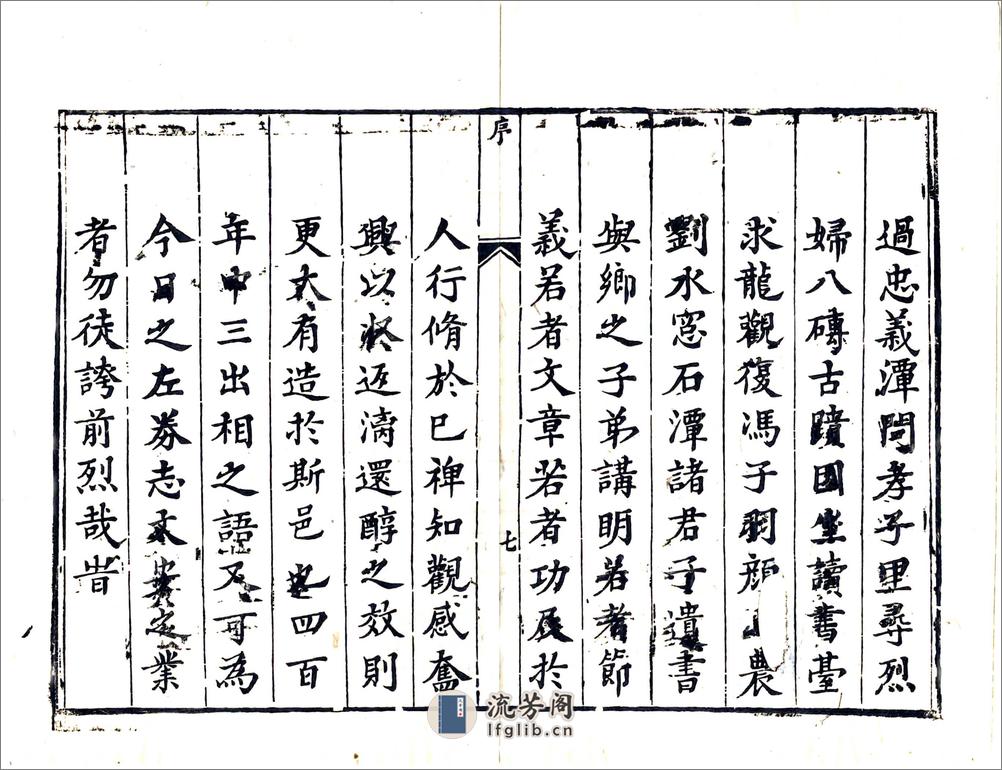 過忠義潭閱孝子里尋烈
婦八磚古蹟因坐讀書臺
求龍觀復馮子羽顔農
劉水窓石潭諸君子遺書
與鄉之子弟講明若者節
義若者文章若者功及於
序
七
人行脩於已禆知觀感奮
興以收返漓還醇之效則
更大有造於斯邑也四百
年中三出相之語又可為
今日之左券志之業
者勿徒誇前烈哉旹
流芳阁
lfglib.cn